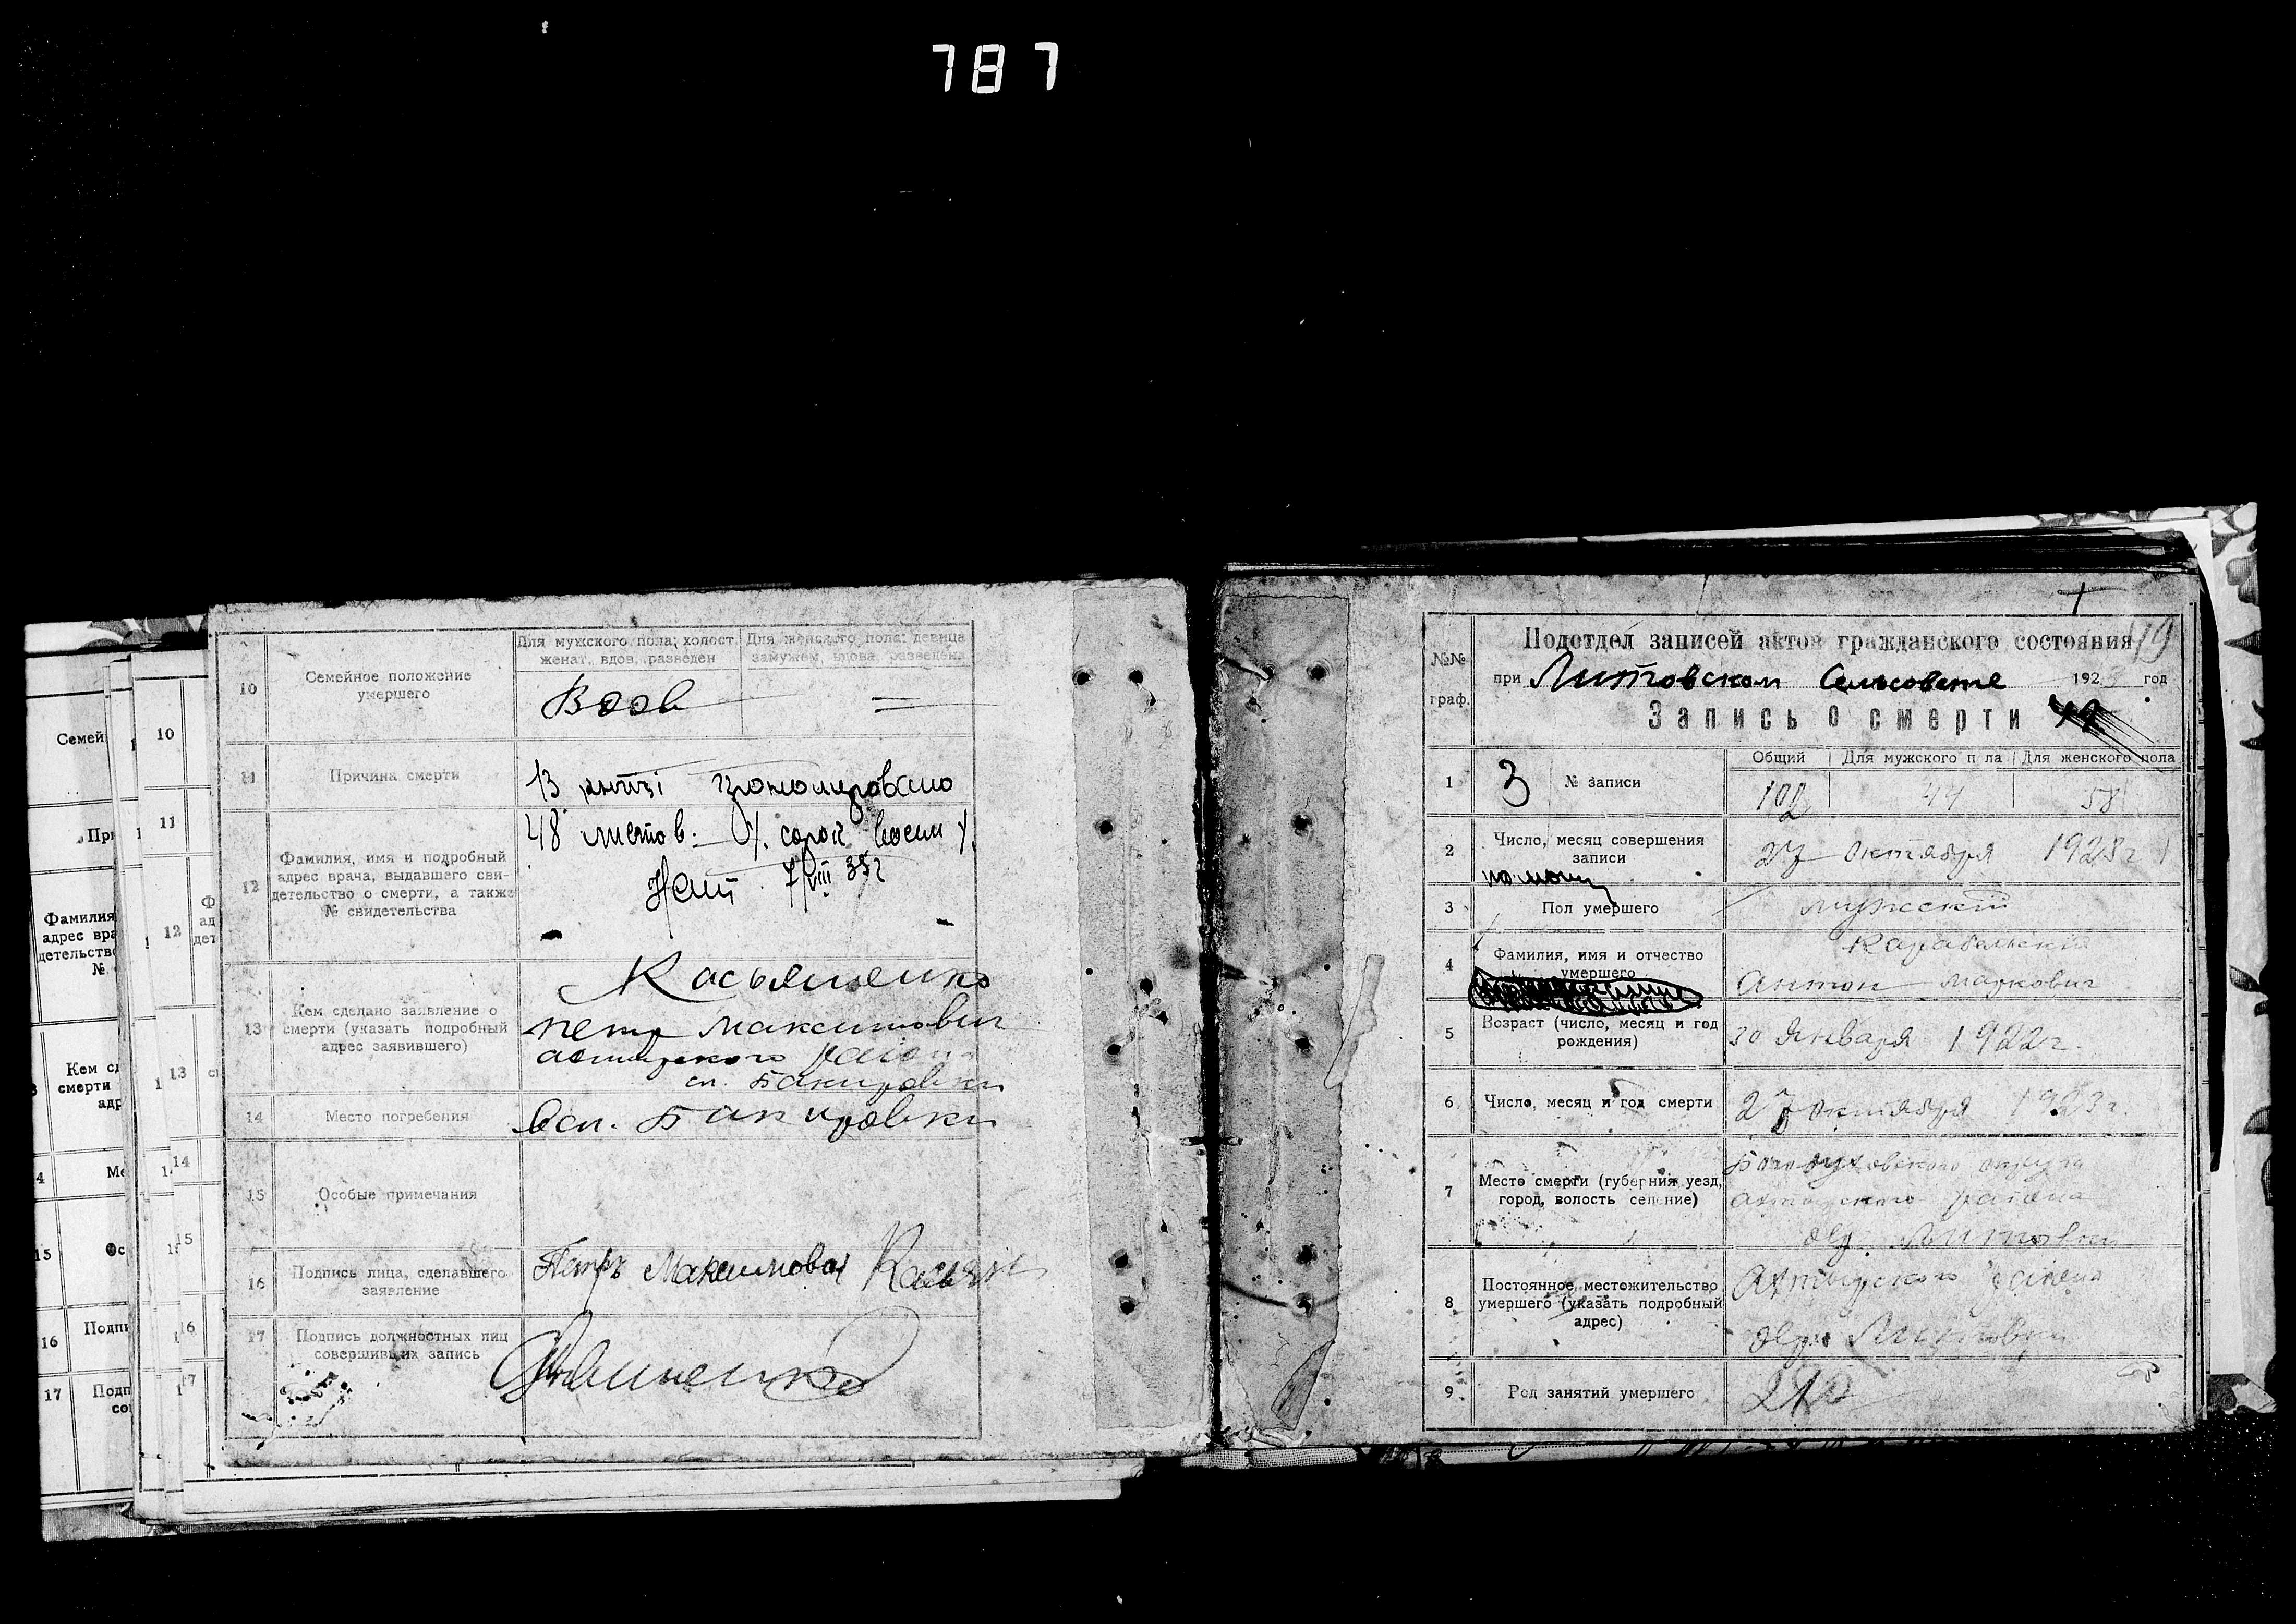 787
10
Семейное положение
умершего
Для мужского пола; холост
женат, вдов, разведен
Для женского пола: девица
замужем, вдова, разведена
Вдов
11
Причина смерти
В книзі
48 листов.
7/VIII 35 г
12
Фамилия, имя и подробный
адрес врача, выдавшего сви-
детельство о смерти, а также
№ свидетельства
13
Кем сделано заявление о
смерти (указать подробный
адрес заявившего)
Касьяненко
петр Максимович
района
сл. Бакировки
14
Место погребения
В сл. Бакировки
15
Особые примечания
16
Подпись лица, сделавшего
заявление
Петръ Максимович Касьян
17
Подпись должностных лиц
совершивших запись
Семей
10
11
Фамилия
адрес вра
детельство
12
Кем сд
смерти
адр
13
14
15
15
16
Подпи
16
17
Подп
17
№№
граф.
Подотдел записей актов гражданского состояния
при Литовском Сельсовете 1923 год
Запись о смерти
1
3
№ записи
Общий
Для мужского п ла
Для женского пола
102
44
58
2
Число, месяц совершения
записи
27 октября 1923 г
3
Пол умершего
мужский
4
Фамилия, имя и отчество
умершего
Антон Маркович
5
Возраст (число, месяц и год
рождения)
30 Января 1922 г.
6
Число, месяц и год смерти
27 октября 1923 г.
7
Место смерти (губерния уезд,
город, волость селение)
Богодуховского округа
ахтырского района
дер. Литовки
8
Постоянное местожительство
умершего (указать подробный
адрес)
Ахтырского района
дер. Литовки
9
Род занятий умершего